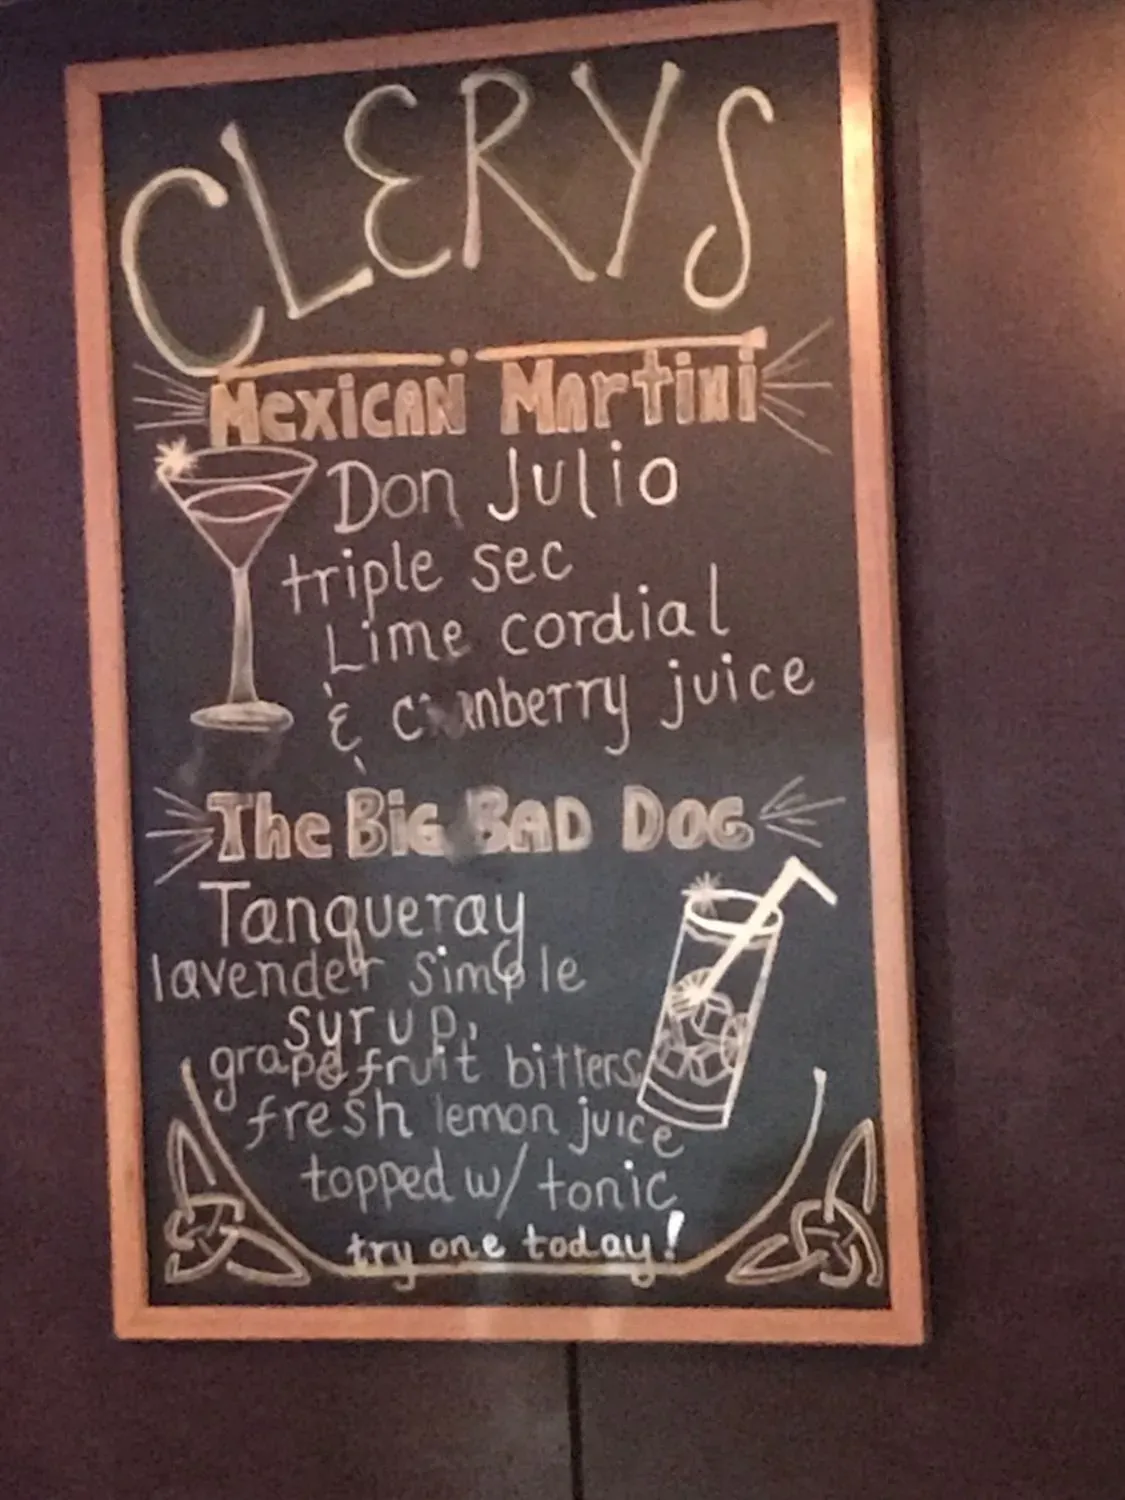 CLERYS
Mexican Martini
Don Julio
triple sec
Lime cordial
& cranberry juice
The Big Bad Dog
Tanqueray
lavender simple
syrup,
grapefruit bitters,
fresh lemon juice
topped w/ tonic
try one today!